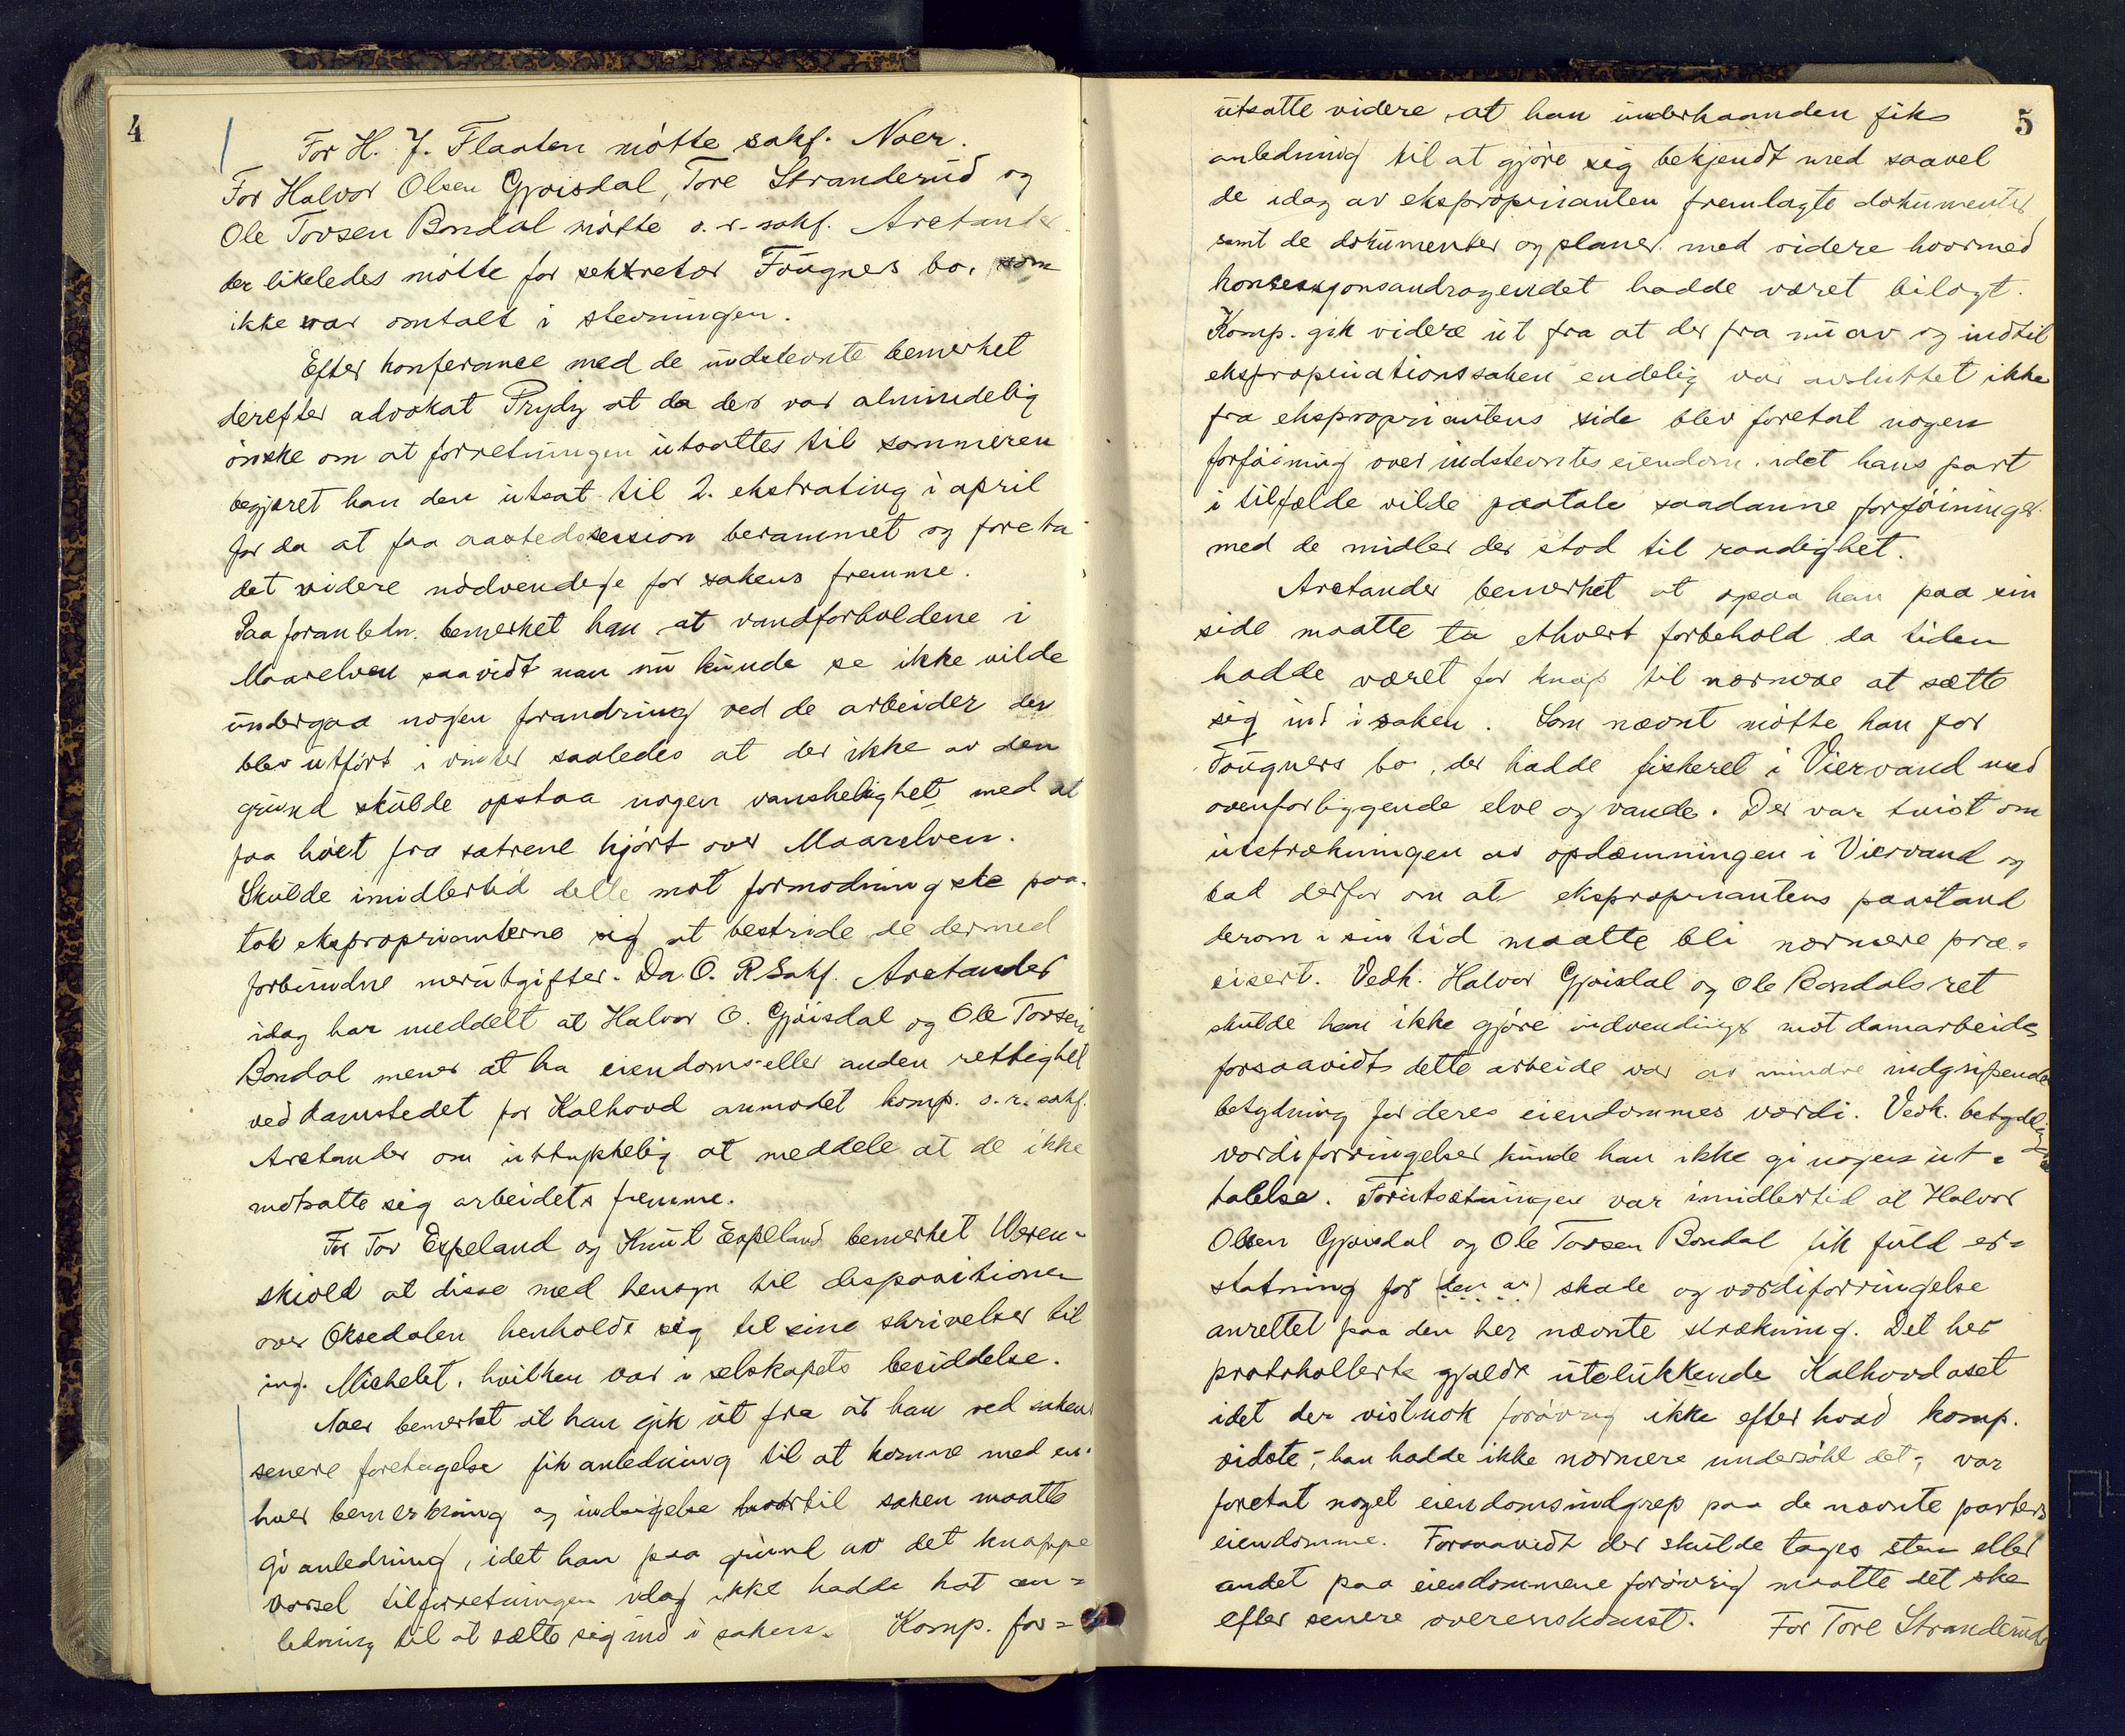 4
For H. J. Flaaten mötte sakf. Noer.
For Halvor Olsen Gjöisdal, Tore Stranderud og
Ole Torsen Bondal mötte o. r. sakf. Arctander
der likeledes mötte for sekretær Fougners bo, som
ikke var omtalt i stevningen.
Efter konferanse med de indstevnte bemerket
derefter advokat Prydz at da der var almindelig
önske om at forretningen utsattes til sommeren
begjæret han den utsat til 2. ekstrating i april
for da at faa aastedssession berammet og foreta
det videre nödvendige for sakens fremme.
Paa foranledn. bemerket han at vandforholdene i
Maarelven saavidt man nu kunde se ikke vilde
undergaa nogen forandring ved de arbeider der
blev utfört i vinter saaledes at der ikke av den
grund skulde opstaa nogen vanskelighet med at
faa höet fra sætrene kjört over Maarelven.
Skulde imidlertid dette mot formodning ske paa-
tok eksproprianterne sig at bestride de dermed
forbundne merutgifter. Da O. R Sakf. Arctander
idag har meddelt at Halvor O. Gjöisdal og Ole Torsen
Bondal mener at ha eiendoms- eller anden rettighet
ved damstedet for Kalhovd anmodet komp. o. r. sakf.
Arctander om uttrykkelig at meddele at de ikke
motsatte sig arbeidets fremme.
For Tov Espeland og Knut Espeland bemerket Weren-
skiold at disse med hensyn til dispositionen
over Oksedalen henholdt sig til sine skrivelser til
ing. Michelet, hvilken var i selskapets besiddelse.
Noer bemerket at han gik ut fra at han ved sakens
senere foretagelse fik anledning til at komme med en-
hver bemerkning og indsigelse hvortil saken maatte
gi anledning, idet han paa grund av det knappe
varsel til forretningen idag ikke hadde hat an-
ledning til at sætte sig ind i saken. Komp. for-
5
utsatte videre, at han underhaanden fik
anledning til at gjöre sig bekjendt med saavel
de idag av eksproprianten fremlagte dokumenter
samt de dokumenter og planer med videre hvormed
konsessjonsandragendet hadde været bilagt.
Komp. gik videre ut fra at der fra nu av og indtil
ekspropriationssaken endelig var avsluttet ikke
fra ekspropriantens side blev foretat nogen
forföining over indstevntes eiendom, idet hans part
i tilfælde vilde paatale saadanne forföininger
med de midler der stod til raadighet.
Arctander bemerket at ogsaa han paa sin
side maatte ta ethvert forbehold da tiden
hadde været for knap til nærmere at sætte
sig ind i saken. Som nævnt mötte han for
Fougners bo, der hadde fiskeret i Viervand med
ovenforliggende elve og vande. Der var tvist om
utstrækningen av opdæmningen i Viervand og
bad derfor om at ekspropriantens paastand
derom i sin tid maatte bli nærmere præ-
cisert. Vedk. Halvor Gjöisdal og Ole Bondals ret
skulde han ikke gjöre indvendinger mot damarbeidet
forsaavidt dette arbeide var av mindre indgripende
betydning for deres eiendommes værdi. Vedk. betydelig
værdiforringelser kunde han ikke gi nogen ut-
talelse. Forutsætningen var imidlertid at Halvor
Olsen Gjöisdal og Ole Torsen Bondal fik fuld er-
statning for (den av) skade og værdiforringelse
anrettet paa den her nævnte strækning. Det her
protokollerte gjaldt utelukkende Kalhovdoset
idet der vistnok forövrig ikke efter hvad komp.
vidste, - han hadde ikke nærmere undersökt det, - var
foretat noget eiendomsindgrep paa de nævnte parters
eiendomme. Forsaavidt der skulde tages sten eller
andet paa eiendommene forövrig maatte det ske
efter senere overenskomst. For Tore Stranderud